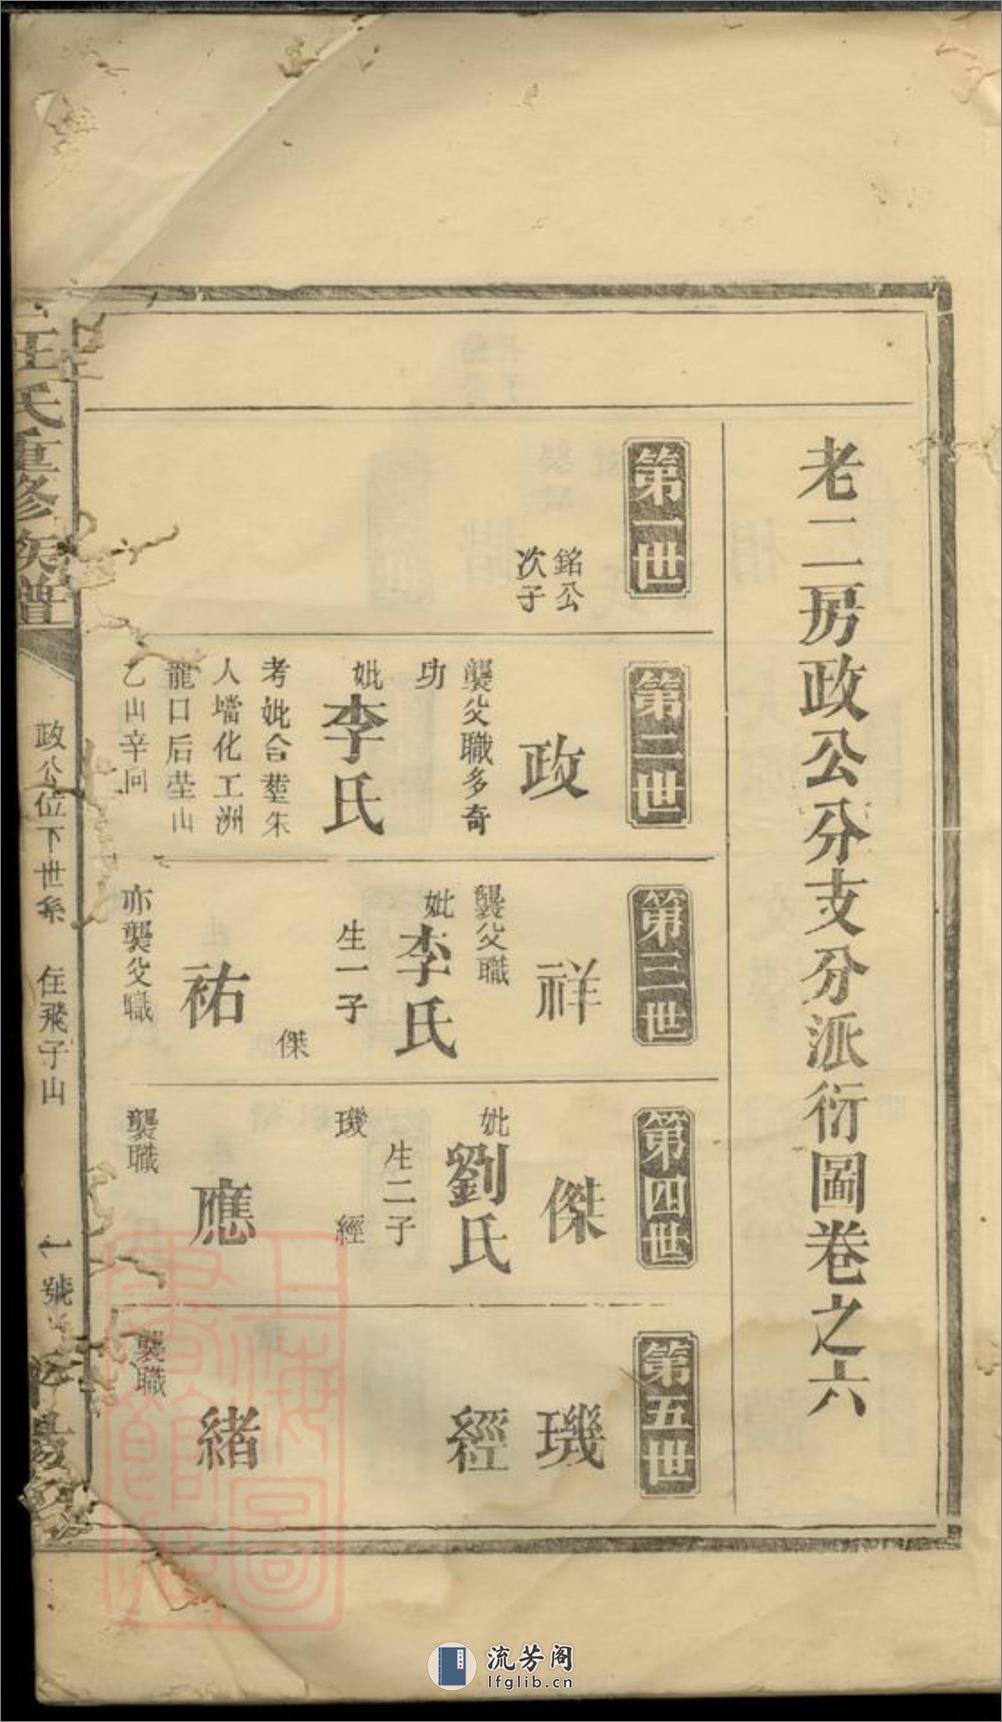 老二房政公分支分派衍圖卷之六
第一世
銘公
次子
第二世
政
襲父職多奇
功
妣李氏
考妣合塟朱
人壋化工洲
龍口后塋山
乙山辛向
第三世
祥
襲父職
妣李氏
生一子
傑
祐
亦襲父職
第四世
傑
妣劉氏
生二子
璣 經
應
襲職
第五世
璣
經
緒
襲職
汪氏重修族譜
政公位下世系 住飛子山
一號
上海圖書館藏
流芳阁
lfglib.cn